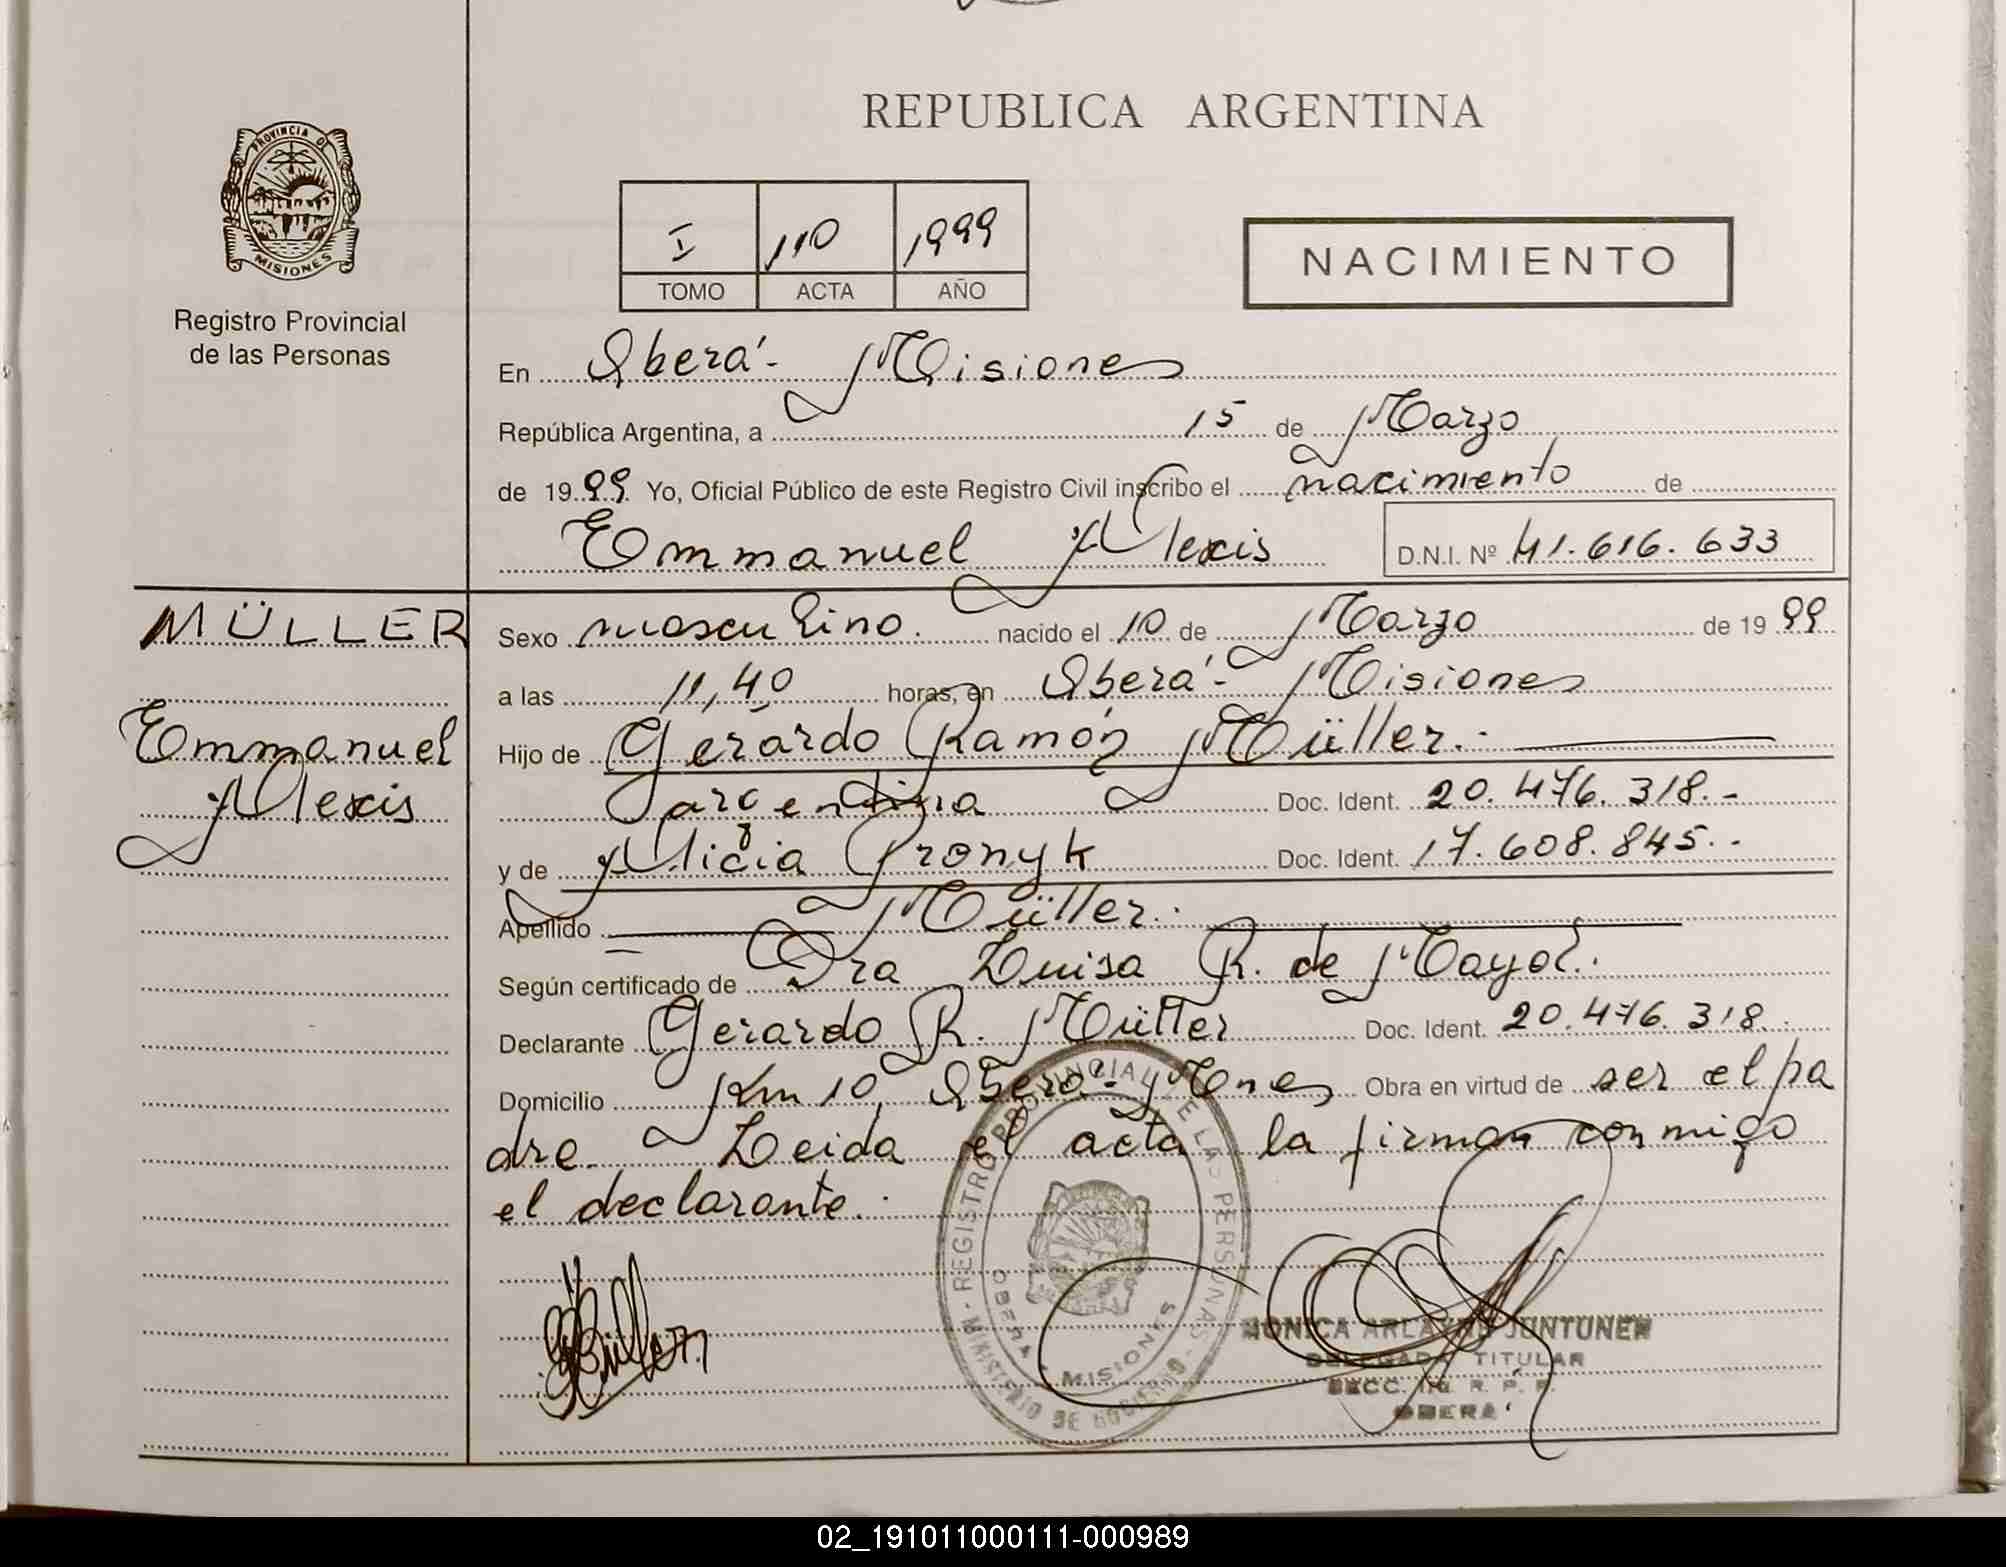 REPUBLICA ARGENTINA
PROVINCIA D
MISIONES
Registro Provincial
de las Personas
I 110 1999
TOMO ACTA AÑO
NACIMIENTO
En Oberá - Misiones
República Argentina, a 15 de Marzo
de 1999 Yo, Oficial Público de este Registro Civil inscribo el nacimiento de
Emmanuel Alexis D.N.I. Nº 41.616.633
MÜLLER
Emmanuel
Alexis
Sexo masculino. nacido el 10 de Marzo de 1999
a las 11,40 horas, en Oberá - Misiones
Hijo de Gerardo Ramón Müller.-
argentina Doc. Ident. 20.476.318.-
y de Alicia Pronyk Doc. Ident. 17.608.845.-
Apellido Müller.-
Según certificado de Dra Luisa R. de Mayol.
Declarante Gerardo R. Müller Doc. Ident. 20.476.318.
Domicilio Km 10, Oberá - Mnes Obra en virtud de ser el pa
dre. Leida el acta la firman conmigo
el declarante.
REGISTRO PROVINCIAL DE LAS PERSONAS - MINISTERIO DE GOBIERNO -
OBERA - MISIONES
MONICA JUNTUNEN
DELEGADA TITULAR
SECC. R. P. P.
OBERA
02_191011000111-000989